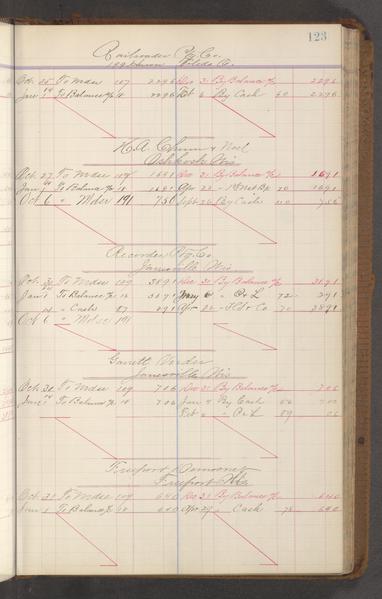 123
Railroader Ptg. Co.
Toledo O.
Oct. 25 To Mdse 107 2296 Dec 31 By Balance 2296
Jan 1 To Balance 18 2296 Feb 6 By Cash 60 2296
H. A. & Noel
Oshkosh Wis
Oct. 27 To Mdse 108 1691 Dec 31 By Balance 1691
Jan 1 To Balance 18 1691 Apr 22 70 1691
Oct 6 " Mdse 191 756 Sept 26 By Cash 110 756
Recorder Ptg. Co.
Janesville Wis
Oct. 30 To Mdse 109 3891 Dec 31 By Balance 3891
Jan 1 To Balance 18 3891 " P & L 72 291
" Cash 87 291 Apr 22 70 3891
Oct 6 " Mdse 191
Garrett Veeder
Janesville Wis
Oct. 30 To Mdse 109 706 Dec 31 By Balance 706
Jan 1 To Balance 18 706 Jan 7 By Cash 56 700
Feb 6 " P & L 59 06
Freeport Democrat
Freeport Ills
Oct. 31 To Mdse 109 640 Dec 31 By Balance 640
Jan 1 To Balance 18 640 Apr 29 " Cash 78 640